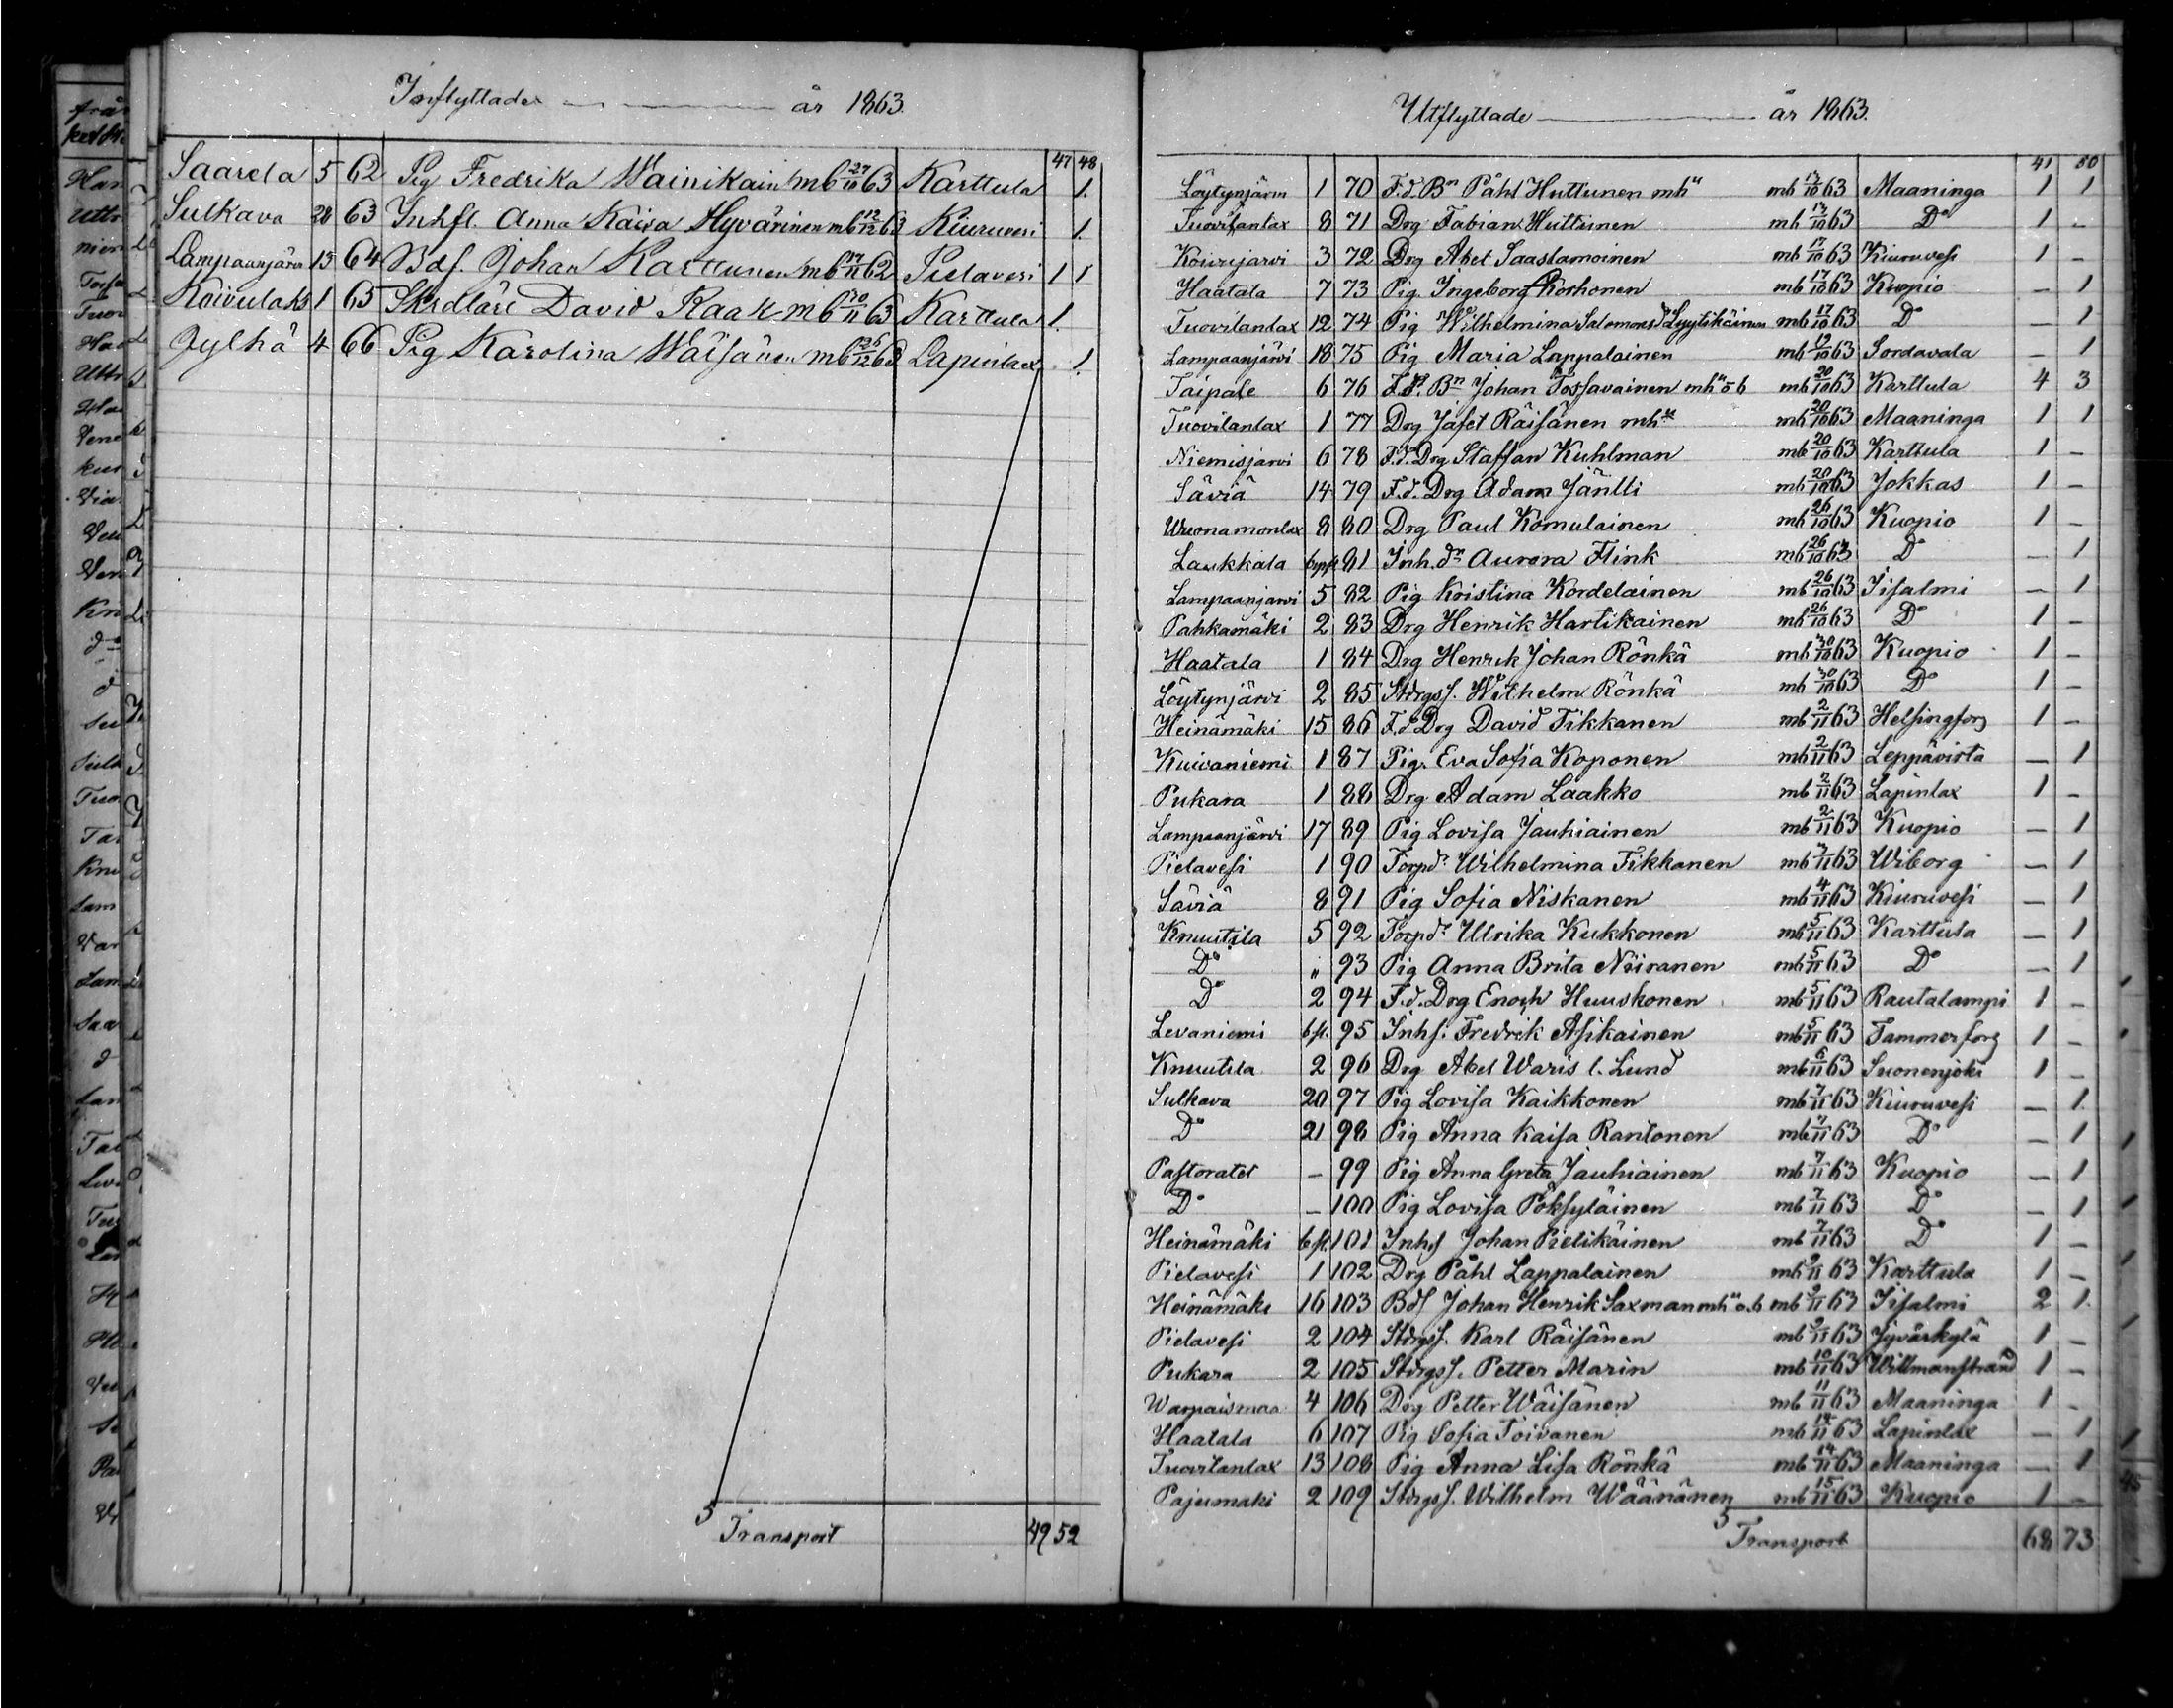 Inflyttade år 1863.
47 48
Saarela 5 62 Pig Fredrika Wainikain mb 27/10 63 Karttula 1.
Sulkava 28 63 Inhfl. Anna Kaisa Hyvärinen mb 12/12 63 Kiuruvesi 1.
Lampaanjärvi 15 64 Bdf. Johan Karttunen mb 17/11 62 Pielavesi 1 1
Koivulaks 1 65 Skrdläre David Kaak mb 30/11 63 Karttula 1.
Jylhä 4 66 Pig Karolina Wäisänen mb 26/12 63 Lapinlax 1.
5 Transport 49 52
Utflyttade år 1863.
41 50
Löytynjärvi 1 70 F.d. Bn Påhl Huttunen mhu mb 13/10 63 Maaninga 1 1
Tuovilanlax 8 71 Drg Fabian Huttunen mb 13/10 63 Do 1 -
Koivujärvi 3 72 Drg Abel Saastamoinen mb 17/10 63 Kiuruvesi 1 -
Haatala 7 73 Pig. Ingeborg Korhonen mb 17/10 63 Kuopio - 1
Tuovilanlax 12 74 Pig Wilhelmina Salomonsd Lyytikäinen mb 17/10 63 Do - 1
Lampaanjärvi 18 75 Pig Maria Lappalainen mb 19/10 63 Sordavala - 1
Taipale 6 76 F.d. Bn Johan Tossavainen mhu o b mb 20/10 63 Karttula 4 3
Tuovilanlax 1 77 Drg Jafet Räisänen mhu mb 20/10 63 Maaninga 1 1
Niemisjärvi 6 78 F.d. Drg Staffan Kuhlman mb 20/10 63 Karttula 1 -
Säviä 14 79 F.d. Drg Adam Jäntti mb 20/10 63 Jokkas 1 -
Wuonamonlax 8 80 Drg Paul Komulainen mb 26/10 63 Kuopio 1 -
Laukkala 81 Inh.dr Aurora Flink mb 26/10 63 Do - 1
Lampaanjärvi 5 82 Pig Kristina Kordelainen mb 26/10 63 Iisalmi - 1
Pahkamäki 2 83 Drg Henrik Hartikainen mb 26/10 63 Do 1 -
Haatala 1 84 Drg Henrik Johan Rönkä mb 30/10 63 Kuopio 1 -
Löytynjärvi 2 85 Stdrgs. Wilhelm Rönkä mb 30/10 63 Do 1 -
Heinämäki 15 86 F.d Drg David Tikkanen mb 2/11 63 Helsingfors 1 -
Kuivaniemi 1 87 Pig. Eva Sofia Koponen mb 2/11 63 Leppävirta - 1
Pukara 1 88 Drg Adam Laakko mb 2/11 63 Lapinlax 1 -
Lampaanjärvi 17 89 Pig Lovisa Jauhiainen mb 2/11 63 Kuopio - 1
Pielavesi 1 90 Torpdr Wilhelmina Tikkanen mb 3/11 63 Wiborg - 1
Säviä 8 91 Pig Sofia Niskanen mb 4/11 63 Kiuruvesi - 1
Knuutila 5 92 Torpdr Ulrika Kukkonen mb 5/11 63 Karttula - 1
Do " 93 Pig Anna Brita Niiranen mb 5/11 63 Do - 1
Do 2 94 F.d. Drg Enoch Huuskonen mb 5/11 63 Rautalampi 1 -
Levaniemi bfl. 95 Inhs. Fredrik Asikainen mb 5/11 63 Tammerfors 1 -
Knuutila 2 96 Drg Abel Waris l. Lund mb 6/11 63 Suonenjoki 1 -
Sulkava 20 97 Pig Lovisa Kaikkonen mb 7/11 63 Kiuruvesi - 1.
Do 21 98 Pig Anna Kaisa Rantonen mb 7/11 63 Do - 1
Pastoratet - 99 Pig Anna Greta Jauhiainen mb 7/11 63 Kuopio - 1
Do - 100 Pig Lovisa Pöksyläinen mb 7/11 63 Do - 1
Heinämäki bfl. 101 Inhs Johan Pietikäinen mb 7/11 63 Do 1 -
Pielavesi 1 102 Drg Påhl Lappalainen mb 9/11 63 Karttula 1 -
Heinämäki 16 103 Bds Johan Henrik Saxman mhu o.b mb 9/11 63 Iisalmi 2 1.
Pielavesi 2 104 Stdrgs. Karl Räisänen mb 9/11 63 Jyväskylä 1 -
Pukara 2 105 Stdrgs. Petter Marin mb 10/11 63 Willmanstrand 1 -
Warpaismaa 4 106 Drg Petter Wäisänen mb 11/11 63 Maaninga 1 -
Haatala 6 107 Pig Sofia Toivanen mb 14/11 63 Lapinlax - 1
Tuovilanlax 13 108 Pig Anna Lisa Rönkä mb 14/11 63 Maaninga - 1
Pajumäki 2 109 Stdrgs. Wilhelm Wäänänen mb 15/11 63 Kuopio 1 -
5 Transport 68 73